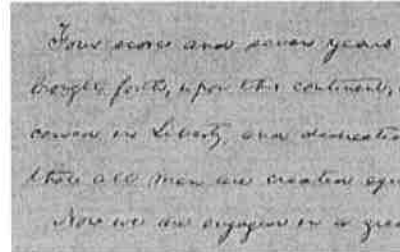 Four score and seven years
brought forth, upon this continent,
conceived in Liberty, and dedicated
that all men are created equal
Now we are engaged in a great